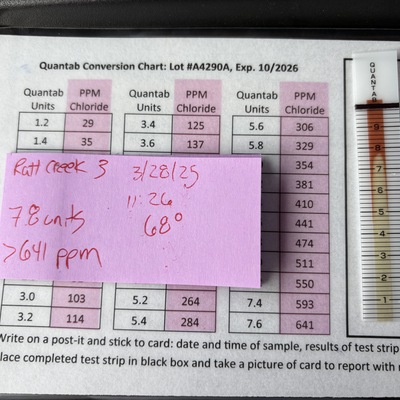 Quantab Conversion Chart: Lot #A4290A, Exp. 10/2026
Quantab Units PPM Chloride Quantab Units PPM Chloride Quantab Units PPM Chloride
1.2 29 3.4 125 5.6 306
1.4 35 3.6 137 5.8 329
354
381
410
441
474
511
550
3.0 103 5.2 264 7.4 593
3.2 114 5.4 284 7.6 641
Ratt Creek 3 3/28/25
11:26
7.8 units 68°
>641 ppm
Write on a post-it and stick to card: date and time of sample, results of test strip
lace completed test strip in black box and take a picture of card to report with
QUANTAB
9
8
7
6
5
4
3
2
1